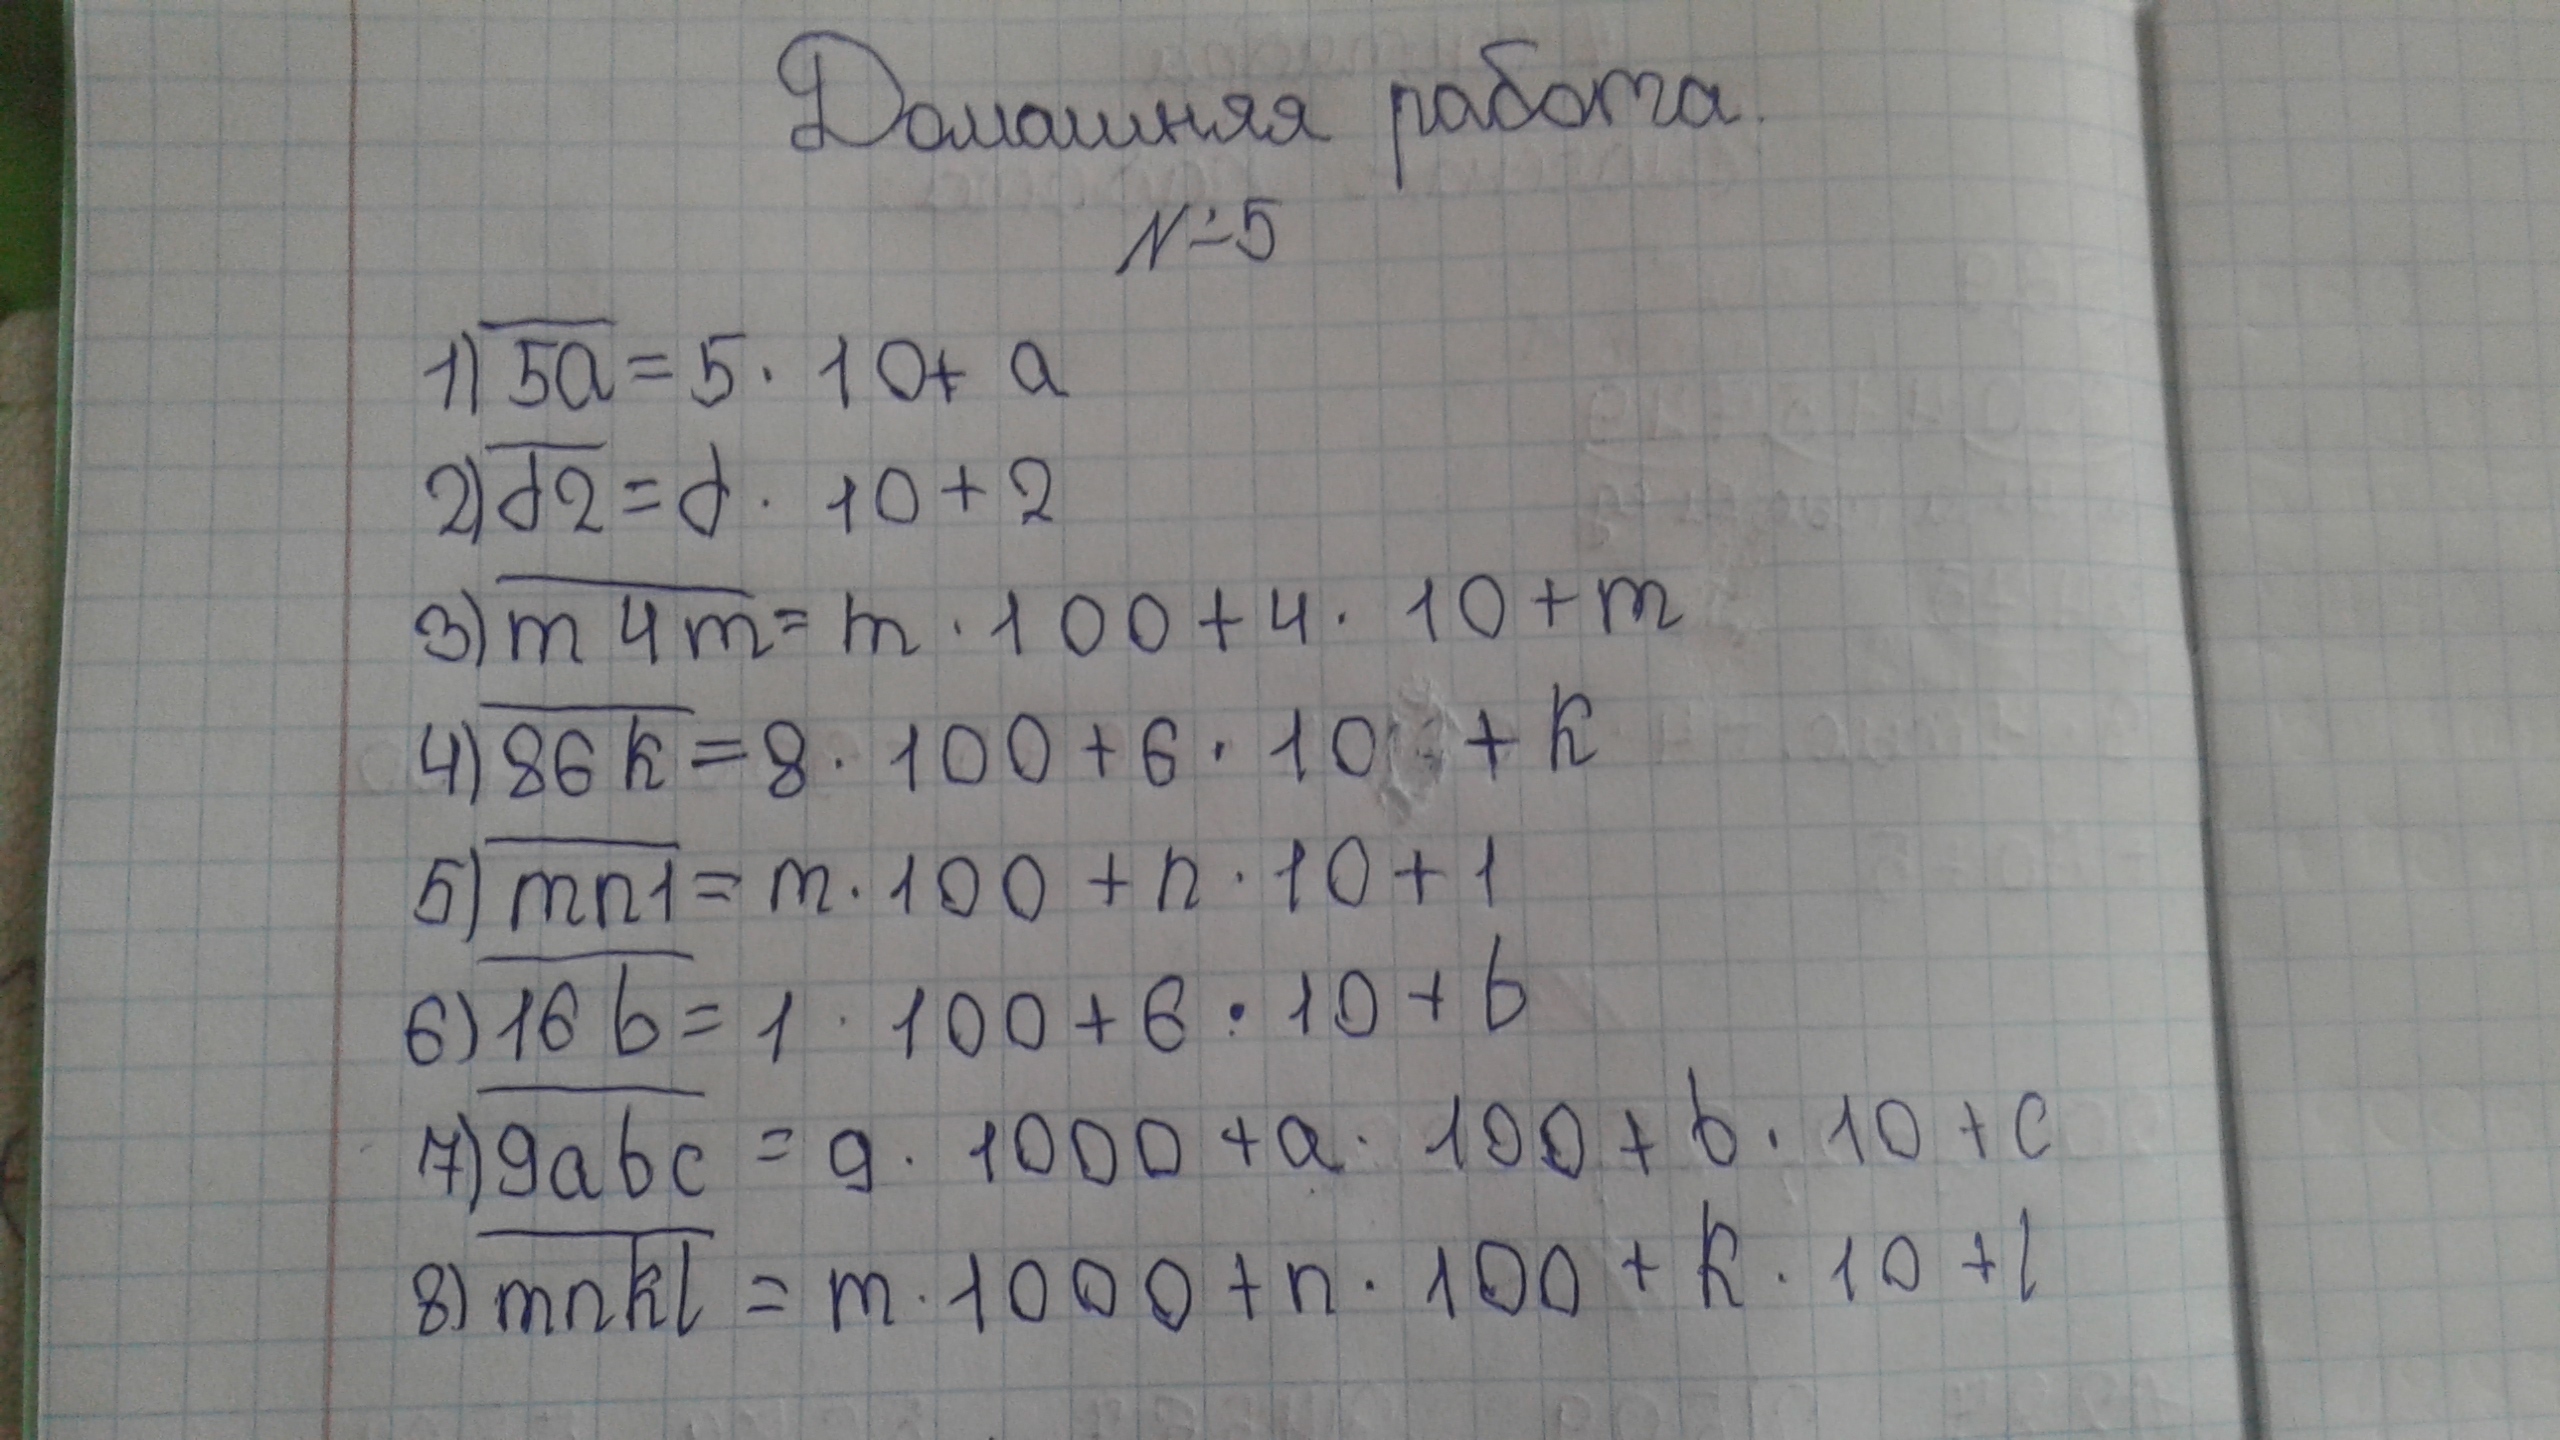 Домашняя работа.
№5
1) 5a = 5 · 10 + a
2) d2 = d · 10 + 2
3) m4m = m · 100 + 4 · 10 + m
4) 86k = 8 · 100 + 6 · 10 + k
5) mn1 = m · 100 + n · 10 + 1
6) 16b = 1 · 100 + 6 · 10 + b
7) 9abc = 9 · 1000 + a · 100 + b · 10 + c
8) mnkl = m · 1000 + n · 100 + k · 10 + l